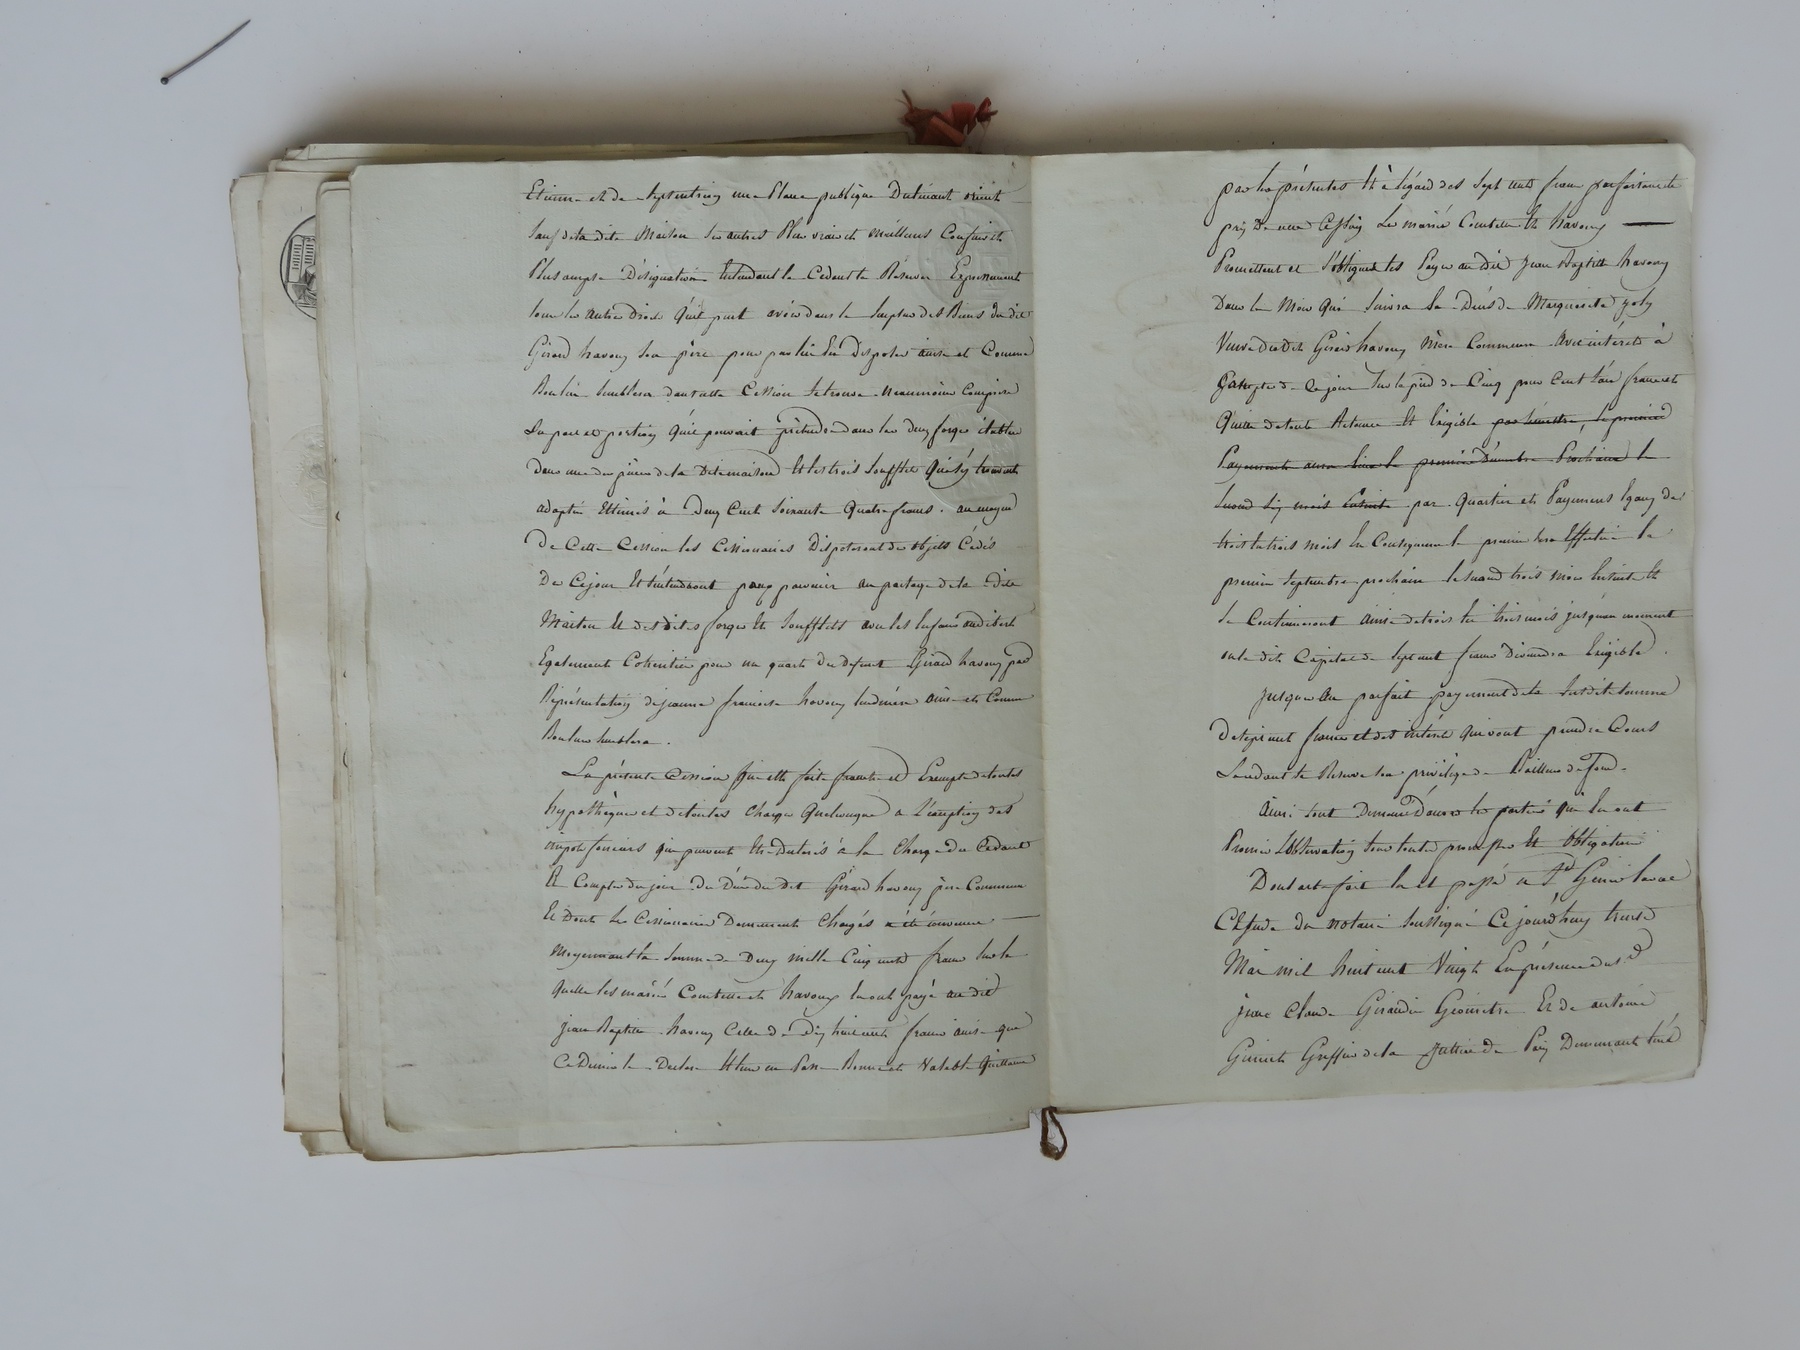 Etienne et de septentrion une Place publique du levant vient
sauf de la dite Maison ses autres Plus vrais et meilleurs Confins et
Plus ample Désignation Entendant le Cédant se Réserver Expressement
tous les autres Droits Qu'il peut avoir dans le surplus des Biens du dit
Girard havouy son père pour par lui En Disposer ainsi et Comme
Bon lui semblera dans cette Cession se trouve Neanmoins Comprise
la part et portion Qu'il pouvait prétendre dans les deux forges établies
dans une des pièces de la Dite maison Et les trois soufflets Qui s'y trouvent
adaptés Estimés à Deux Cent soixante Quatre francs. au moyen
De Cette Cession les Cessionnaires Disposeront des objets Cédés
De Ce jour Et s'entendront pour parvenir au partage de la Dite
Maison Et des dites forges Et Soufflets avec les Enfans audibert
Egalement Cohéritiers pour un quart du defunt Girard havouy par
Réprésentation de jeanne francoise havouy leur mère ainsi et Comme
Bon leur semblera.
La présente Cession est faite franche et Exempte de toutes
hypothèques et de toutes Charges Quelconques a L'exeption des
impots fonciers qui peuvent Etre dus à la Charge du Cédant
A Compter du jour du Décès du dit Gérard havouy père Commun
Et Dont les Cessionnaires Demeurent Chargés a été convenue
Moyennant la somme de Deux mille Cinq cents francs sur la
quelle les mariés Combette et havouy En ont payé au dit
jean Baptiste havouy Celle de Dix huit cents francs ainsi que
Ce Dernier le Declare Et leur en Passe Bonne et Valable Quittance
par les présentes Et à l'égard des sept cents francs parfaisant le
prix De cette Cession Les mariés Combette Et havouy
Promettent et s'obligent les Payer au dit jean Baptiste havouy
Dans le Mois Qui suivra le Décès de Marguerite joly
Veuve du dit Girard havouy Mère Commune avec intérêts à
Compter de Ce jour sur le pied de Cinq pour Cent l'an francs et
Quitte de toute Retenue Et Exigible par semestre, le premier
Payement aura lieu le premier Décembre Prochain le
second six mois Ensuite par Quartier et Payemens Egaux de
trois en trois mois En Consequence le premier sera Effectué le
premier septembre prochain le second trois Mois Ensuite Et
se Continueront ainsi de trois En trois mois jusqu'au moment
ou le dit Capital de sept cent francs Deviendra Exigible.
jusques Au parfait payement de la susdite somme
de sept cent francs et des intérêts qui vont prendre Cours
Le cédant se Réserve son privilège de Bailleur de fond.
Ainsi tout Demeure D'accord les parties qui En ont
Promis L'observation sous toutes promesses Et obligations
Dont acte fait Lu Et passé a St Genis laval
Etude du notaire soussigné Ce jourd'huy treize
Mai mil huit cent Vingt En présence des Srs
jean Claude Girardin Géometre Et de antoine
Guinet Greffier de la Justice de Paix Demeurant tous